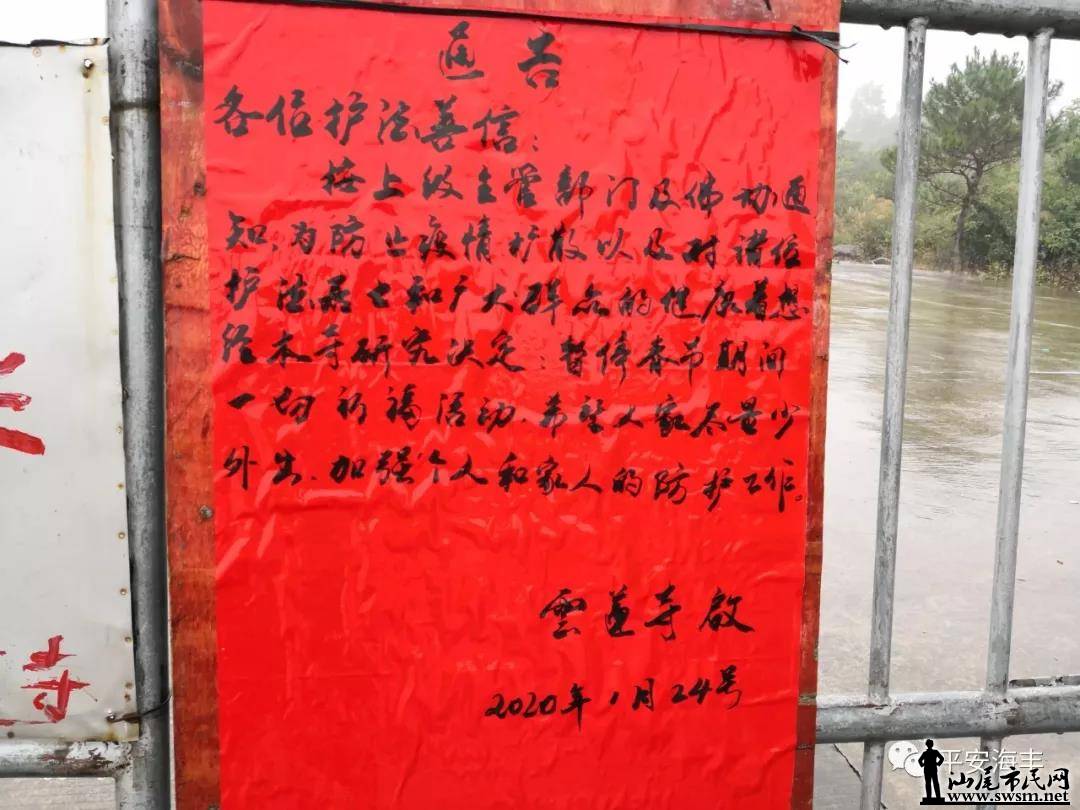 通告
各位护法善信：
接上级主管部门及佛协通
知，为防止疫情扩散以及对诸位
护法居士和广大群众的健康着想
经本寺研究决定：暂停春节期间
一切祈福活动、希望大家尽量少
外出、加强个人和家人的防护工作。
雲莲寺啟
2020年1月24号
寺
平安海丰
汕尾市民网
www.swsm.net